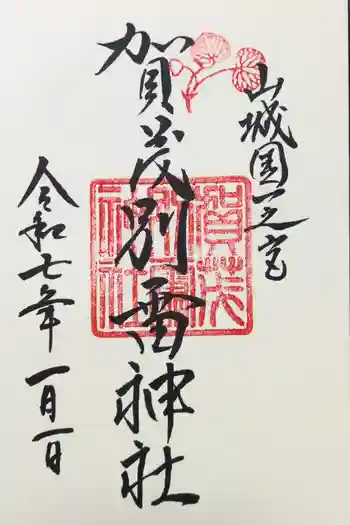 山城国一之宮
賀茂別雷神社
賀茂別雷神社
令和七年一月一日